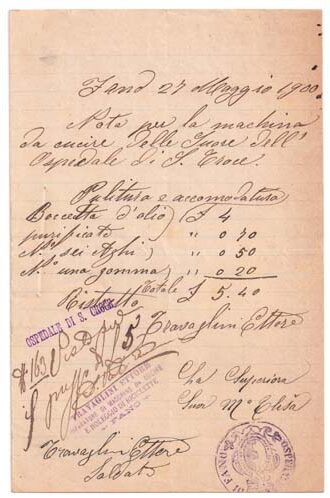 Fano 27 Maggio 1900
Nota per la machina
da cucire delle Suore dell'
Ospedale di S. Croce.
Pulitura e accomodatura £ 4
Boccetta d'olio
purificato " 0 70
N° sei Aghi " 0 50
N° una gomma " 0 20
Totale £ 5.40
Ristretto 5
Travaglini Ettore
OSPEDALE DI S. CROCE
TRAVAGLINI ETTORE
E NOLEGGIO DI BICICLETTE
FANO
La Superiora
Suor Ma Elisa
Travaglini Ettore
Saldato